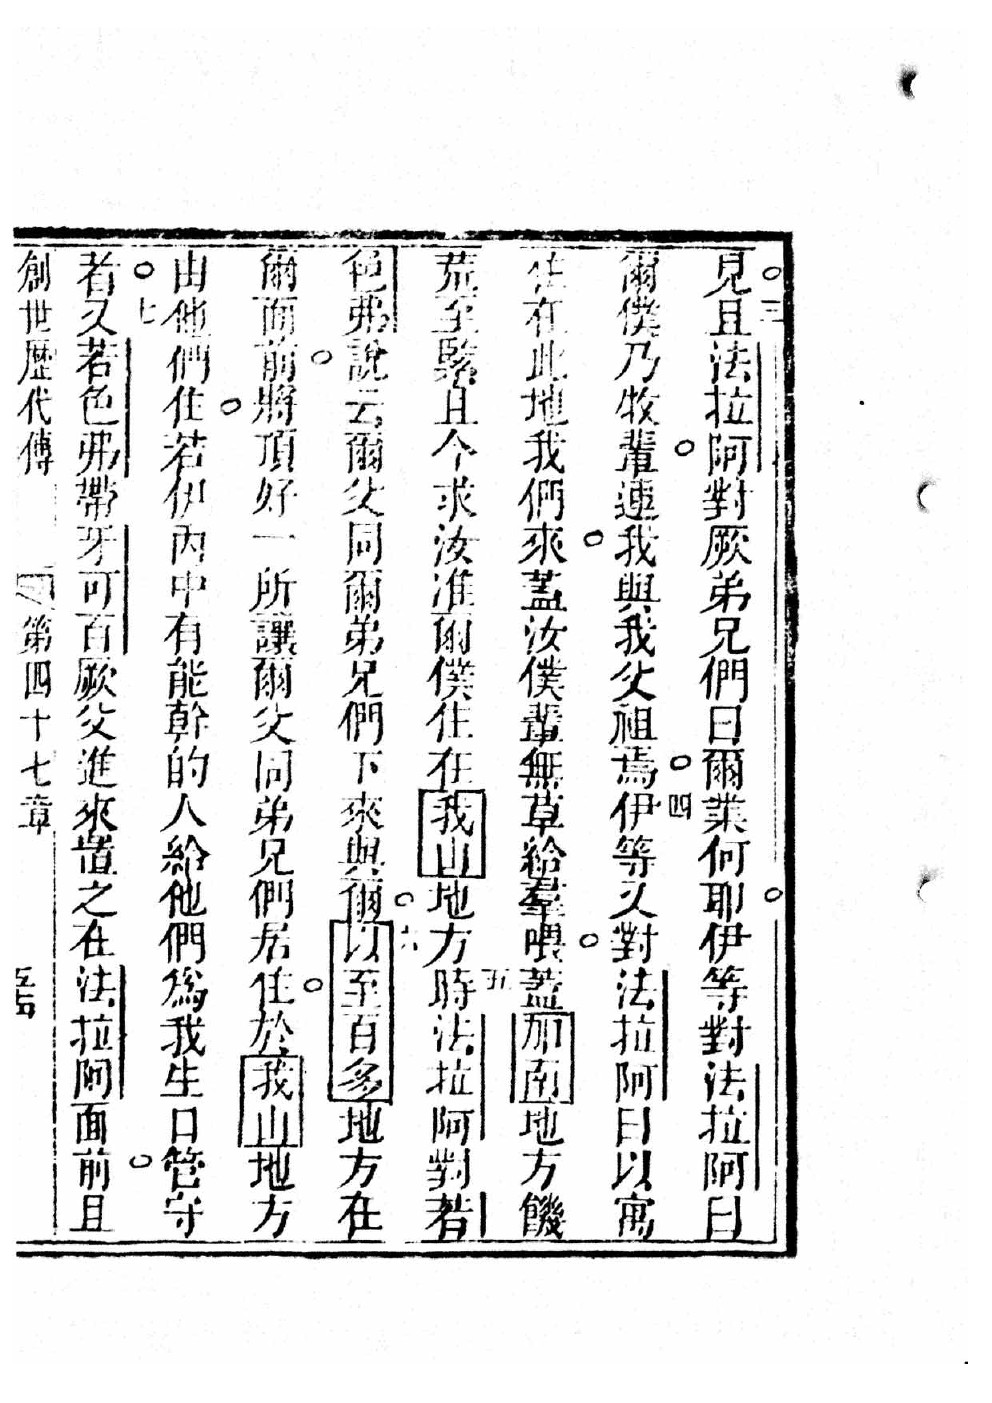 見且法拉阿對厥弟兄們曰爾業何耶伊等對法拉阿曰
三
爾僕乃牧輩連我與我父祖焉伊等又對法拉阿曰以寓
四
住在此地我們來蓋汝僕輩無草給羣喂蓋加南地方饑
五
荒至緊且今求汝准爾僕住在我山地方時法拉阿對若
六
色弗說云爾父同爾弟兄們下來與爾以至百多地方在
爾面前將頂好一所讓爾父同弟兄們居住於我山地方
由他們住若伊內中有能幹的人給他們為我生口管守
七
者又若色弗帶牙可百厥父進來置之在法拉阿面前且
創世歷代傳 第四十七章